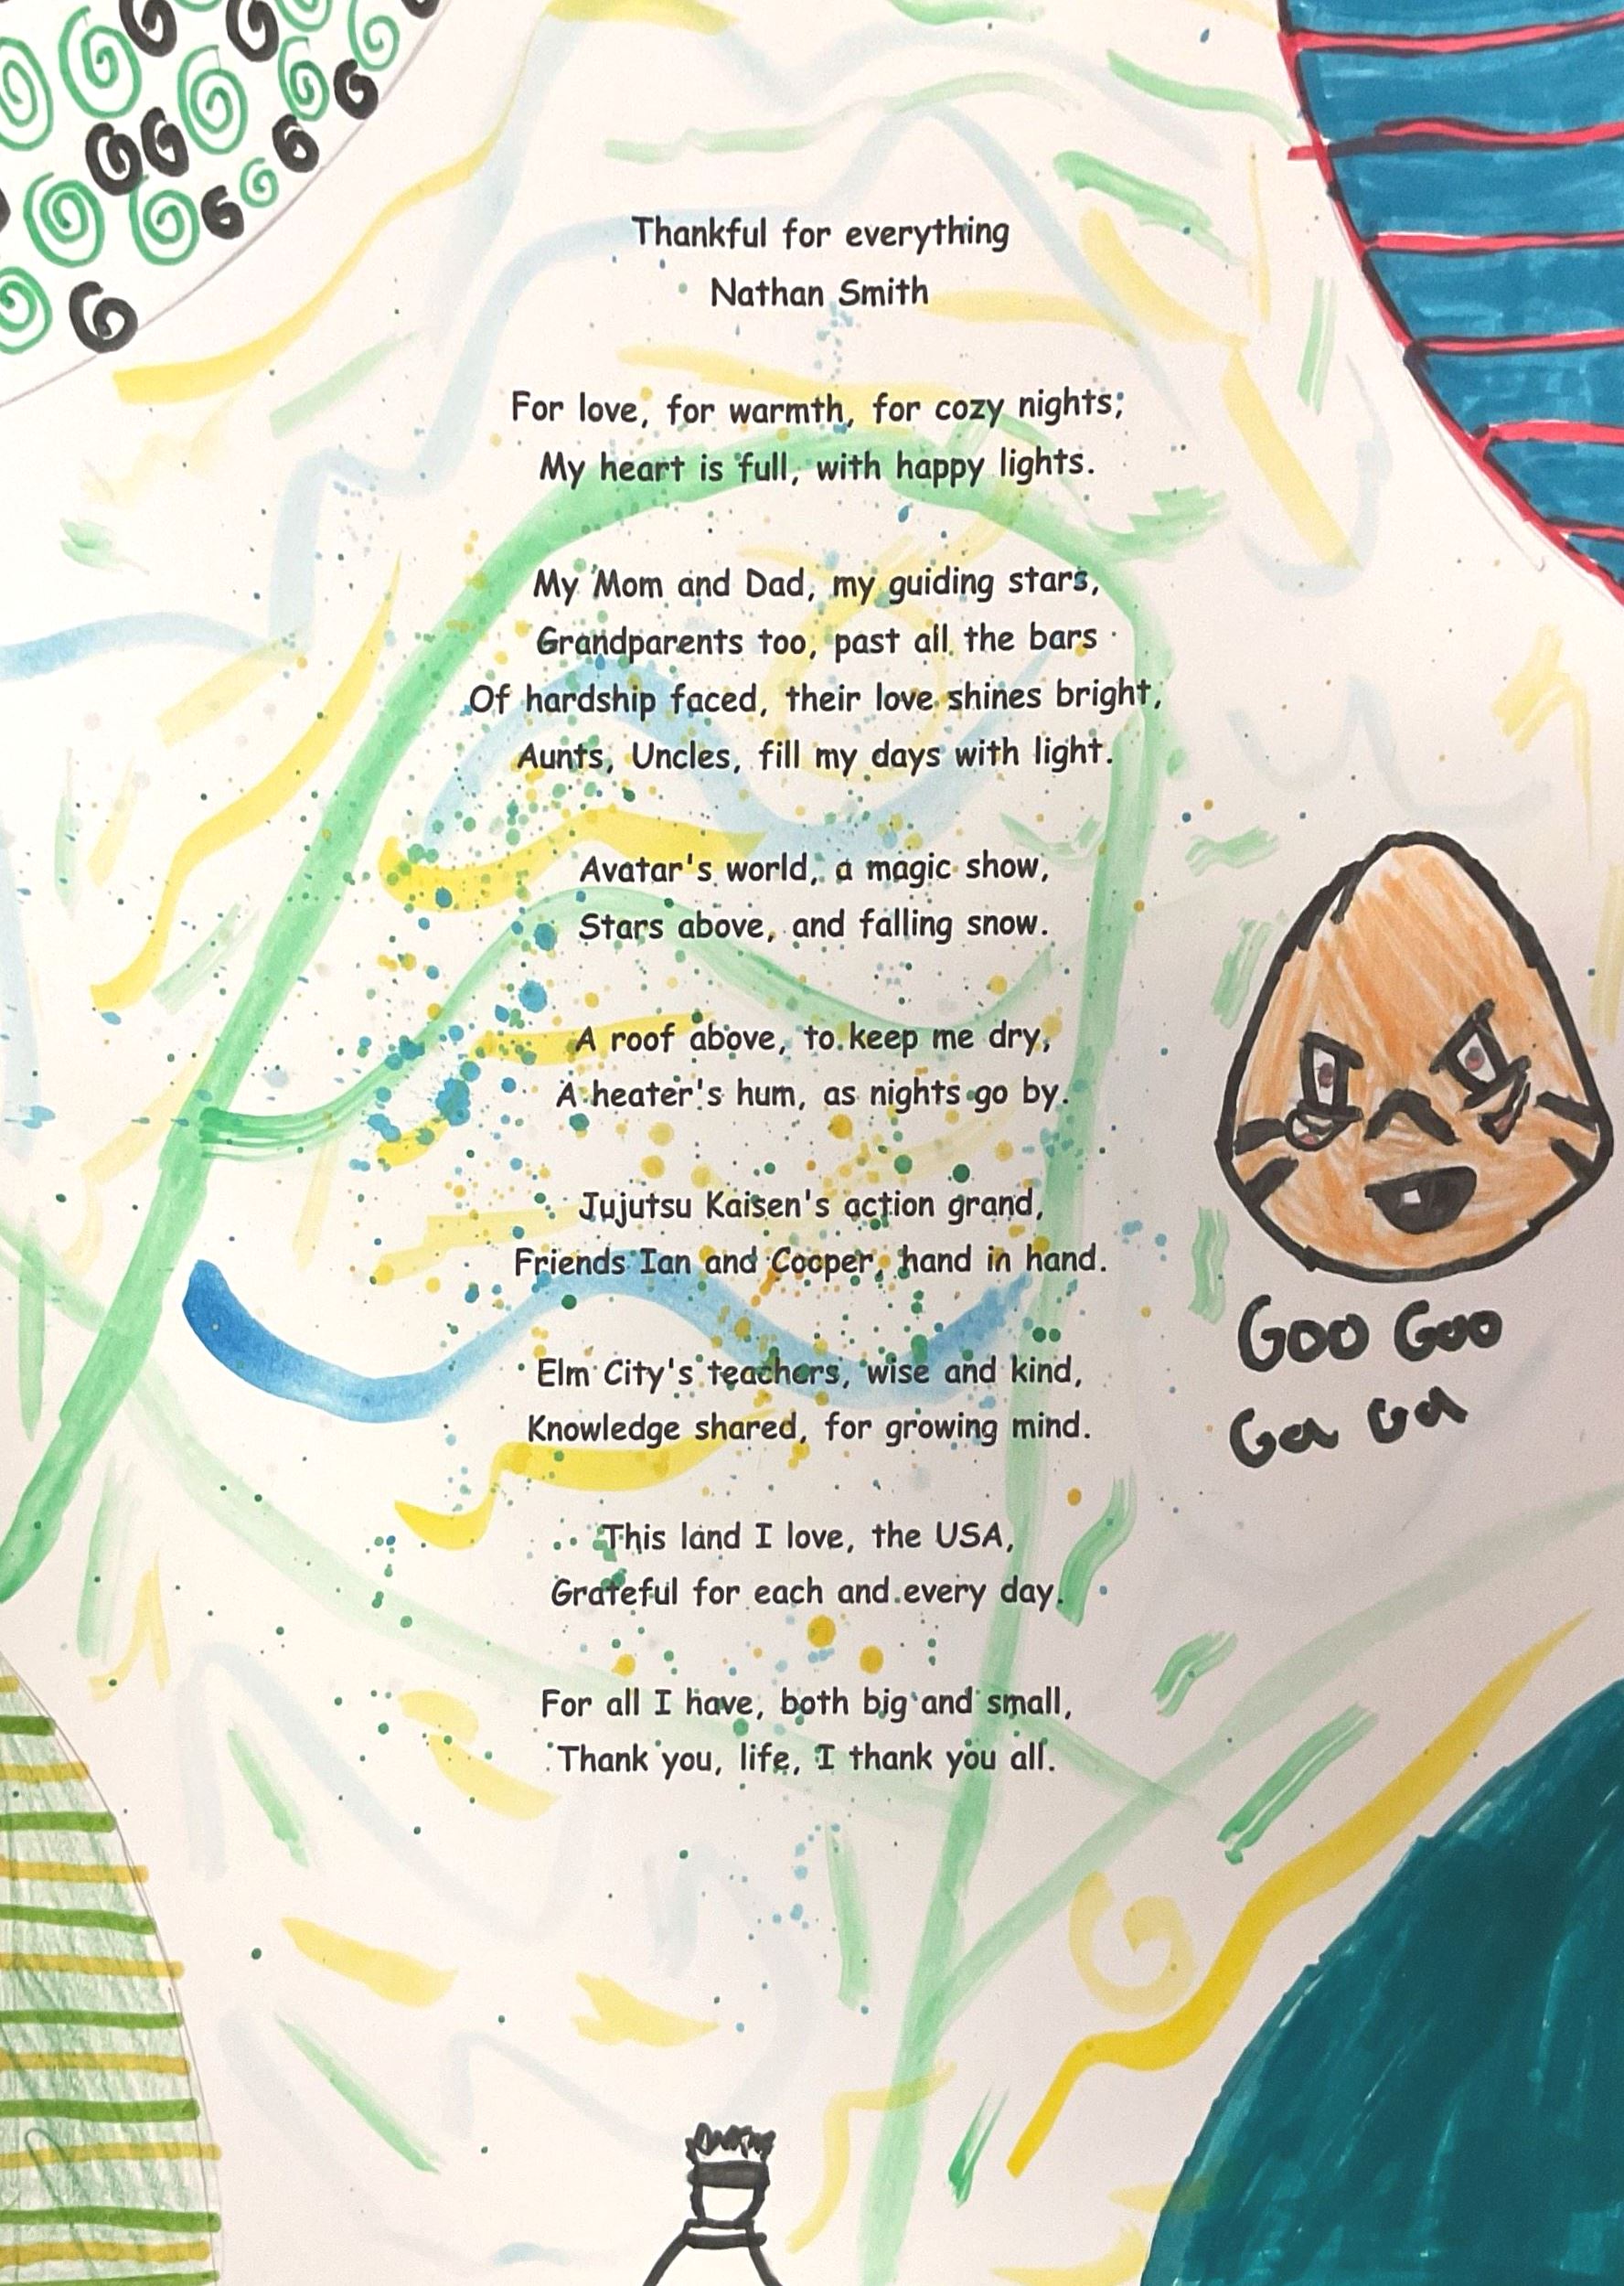 Thankful for everything
Nathan Smith
For love, for warmth, for cozy nights;
My heart is full, with happy lights.
My Mom and Dad, my guiding stars,
Grandparents too, past all the bars
Of hardship faced, their love shines bright,
Aunts, Uncles, fill my days with light.
Avatar's world, a magic show,
Stars above, and falling snow.
A roof above, to keep me dry,
A heater's hum, as nights go by.
Jujutsu Kaisen's action grand,
Friends Ian and Cooper, hand in hand.
Elm City's teachers, wise and kind,
Knowledge shared, for growing mind.
This land I love, the USA,
Grateful for each and every day.
For all I have, both big and small,
Thank you, life, I thank you all.
Goo Goo
Ga Ga